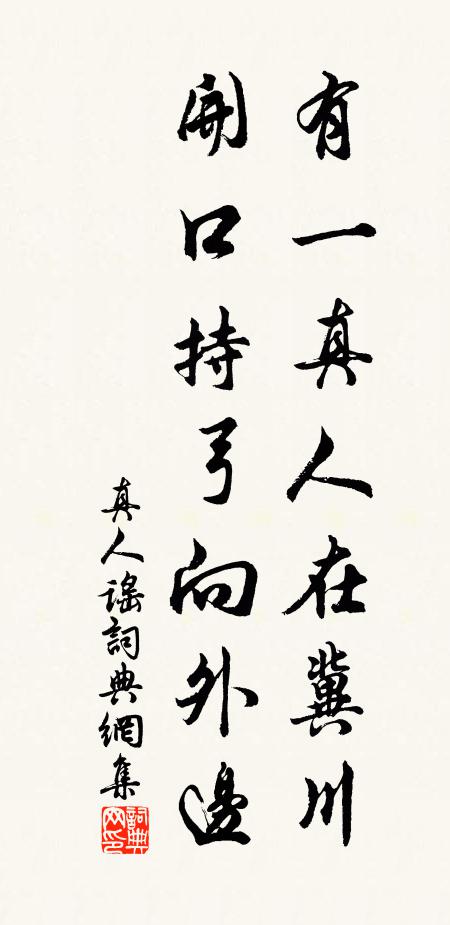 有一真人在冀川
開口持弓向外邊
真人謠詞典網集
詞典网印